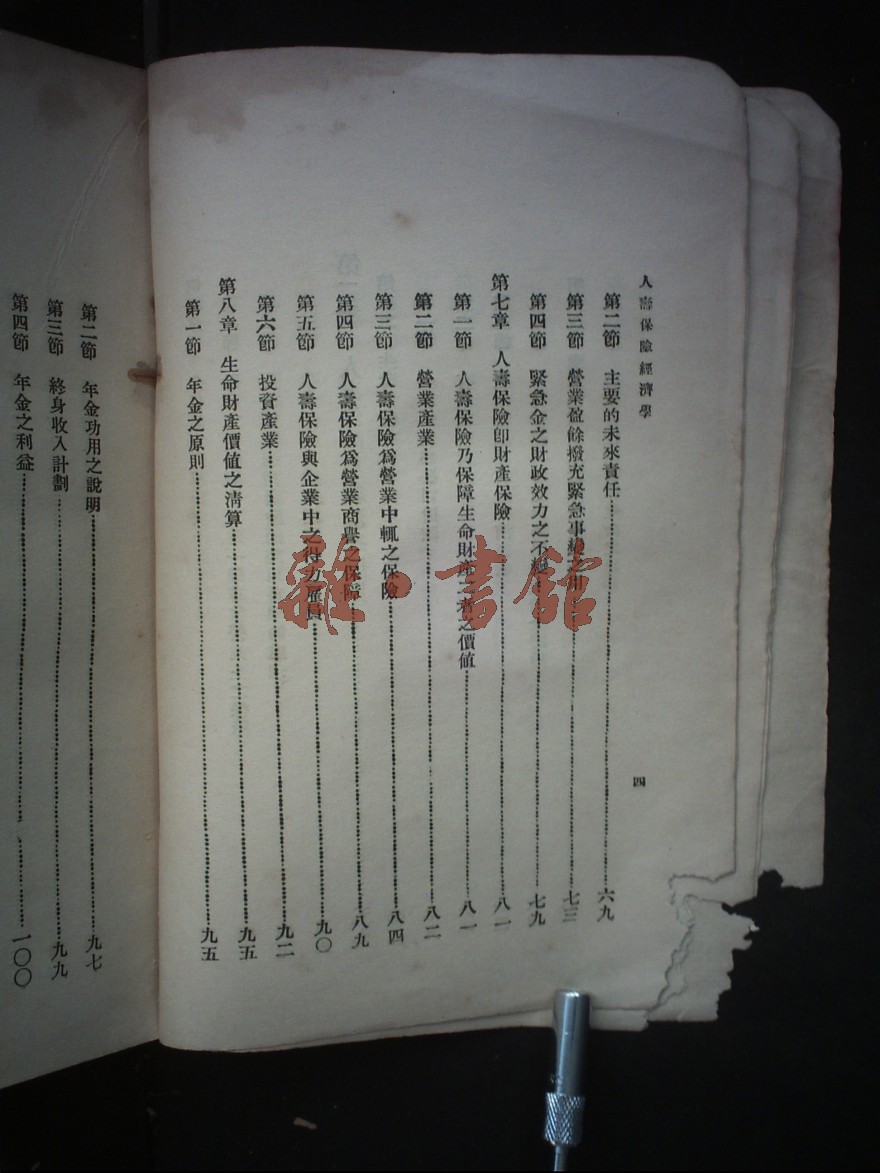 人壽保險經濟學
四
第二節 主要的未來責任……六九
第三節 營業盈餘撥充緊急事……七三
第四節 緊急金之財政效力之不……七九
第七章 人壽保險卽財產保險……八一
第一節 人壽保險乃保障生命財產之者之價値……八一
第二節 營業產業……八二
第三節 人壽保險爲營業中輒之保險……八四
第四節 人壽保險爲營業商譽之保障……八九
第五節 人壽保險與企業中之得力雇員……九〇
第六節 投資產業……九二
第八章 生命財產價値之淸算……九五
第一節 年金之原則……九五
第二節 年金功用之說明……九七
第三節 終身收入計劃……九九
第四節 年金之利益……一〇〇
雜·書館